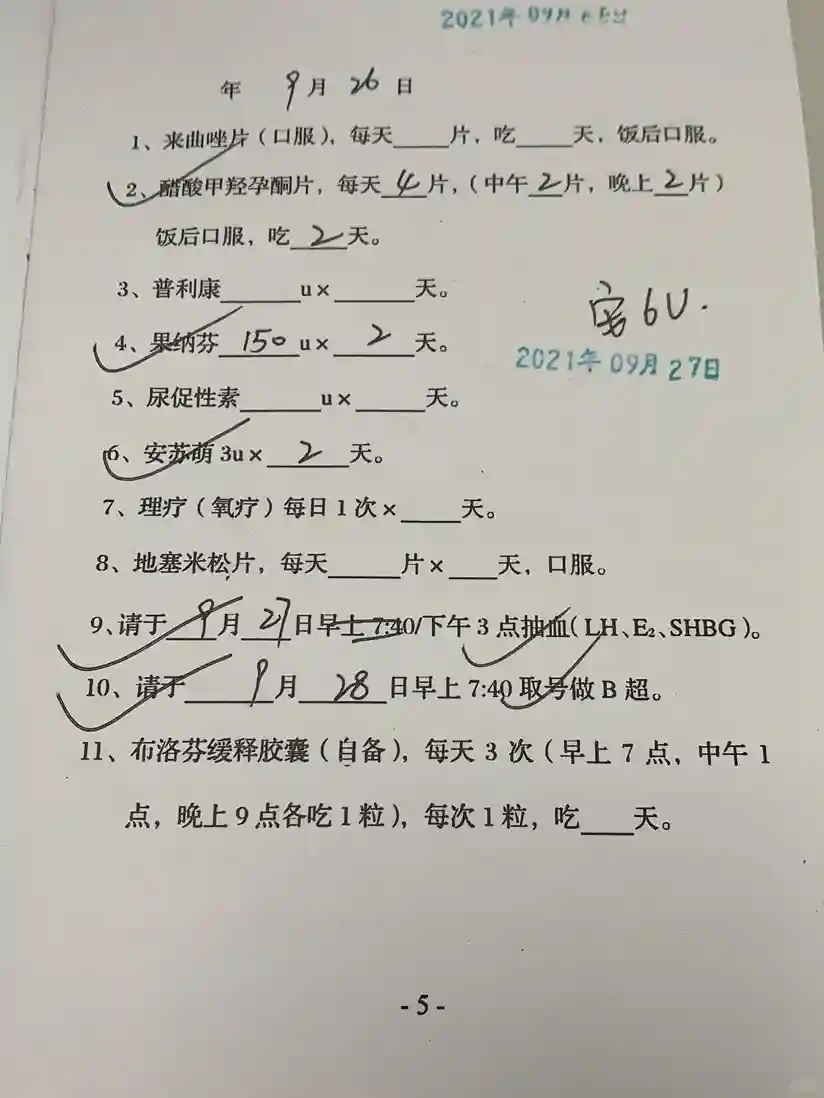 2021年09月
年 9月 26日
1、来曲唑片（口服），每天____片，吃____天，饭后口服。
2、醋酸甲羟孕酮片，每天 4 片，（中午 2 片，晚上 2 片）
饭后口服，吃 2 天。
3、普利康______u×______天。
安6U.
4、果纳芬 150 u× 2 天。
2021年09月27日
5、尿促性素______u×_____天。
6、安苏萌 3u× 2 天。
7、理疗（氧疗）每日1次×____天。
8、地塞米松片，每天_____片×___天，口服。
9、请于 9 月 27 日早上 7:40/下午 3 点抽血（LH、E₂、SHBG）。
10、请于 9 月 28 日早上 7:40 取号做 B 超。
11、布洛芬缓释胶囊（自备），每天 3 次（早上 7 点，中午 1
点，晚上 9 点各吃 1 粒），每次 1 粒，吃___天。
- 5 -